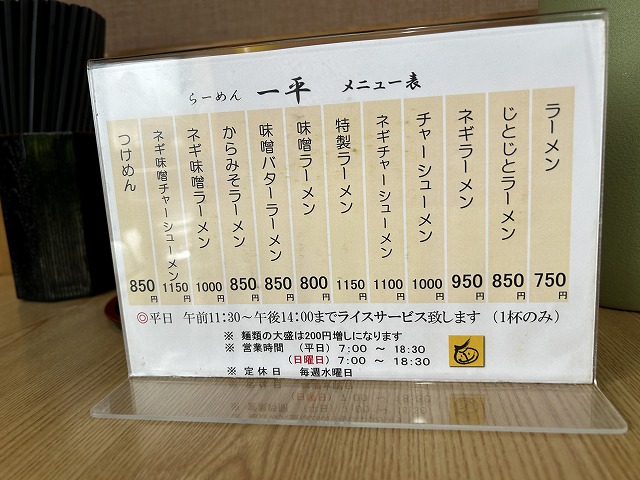 らーめん 一平 メニュー表
ラーメン 750円
じとじとラーメン 850円
ネギラーメン 950円
チャーシューメン 1000円
ネギチャーシューメン 1100円
特製ラーメン 1150円
味噌ラーメン 800円
味噌バターラーメン 850円
からみそラーメン 850円
ネギ味噌ラーメン 1000円
ネギ味噌チャーシューメン 1150円
つけめん 850円
◎平日 午前11:30～午後14:00までライスサービス致します (1杯のみ)
※ 麺類の大盛は200円増しになります
※ 営業時間 (平日) 7:00 ～ 18:30
(日曜日) 7:00 ～ 18:30
※ 定休日 毎週水曜日